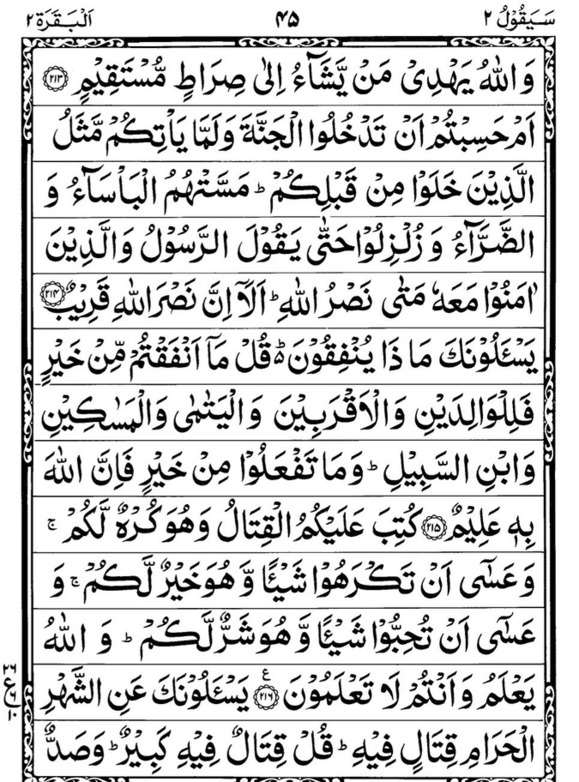 سَيَقُوْلُ ٢ ٤٥ اَلْبَقَرَة ٢
وَاللّٰهُ يَهْدِىْ مَنْ يَّشَآءُ اِلٰى صِرَاطٍ مُّسْتَقِيْمٍ ۝٢١٣
اَمْ حَسِبْتُمْ اَنْ تَدْخُلُوا الْجَنَّةَ وَلَمَّا يَاْتِكُمْ مَّثَلُ
الَّذِيْنَ خَلَوْا مِنْ قَبْلِكُمْ ؕ مَسَّتْهُمُ الْبَاْسَآءُ وَ
الضَّرَّآءُ وَ زُلْزِلُوْا حَتّٰى يَقُوْلَ الرَّسُوْلُ وَالَّذِيْنَ
اٰمَنُوْا مَعَهٗ مَتٰى نَصْرُ اللّٰهِ ؕ اَلَاۤ اِنَّ نَصْرَ اللّٰهِ قَرِيْبٌ ۝٢١٤
يَسْـَٔلُوْنَكَ مَا ذَا يُنْفِقُوْنَ ؕ۬ قُلْ مَاۤ اَنْفَقْتُمْ مِّنْ خَيْرٍ
فَلِلْوَالِدَيْنِ وَالْاَقْرَبِيْنَ وَالْيَتٰمٰى وَالْمَسٰكِيْنِ
وَابْنِ السَّبِيْلِ ؕ وَمَا تَفْعَلُوْا مِنْ خَيْرٍ فَاِنَّ اللّٰهَ
بِهٖ عَلِيْمٌ ۝٢١٥ كُتِبَ عَلَيْكُمُ الْقِتَالُ وَهُوَ كُرْهٌ لَّكُمْ ۚ
وَعَسٰٓى اَنْ تَكْرَهُوْا شَيْـًٔا وَّهُوَ خَيْرٌ لَّكُمْ ۚ وَ
عَسٰٓى اَنْ تُحِبُّوْا شَيْـًٔا وَّهُوَ شَرٌّ لَّكُمْ ؕ وَ اللّٰهُ
يَعْلَمُ وَاَنْتُمْ لَا تَعْلَمُوْنَ ۝٢١٦ ع يَسْـَٔلُوْنَكَ عَنِ الشَّهْرِ
٢٦ ع ٦ ١٠
الْحَرَامِ قِتَالٍ فِيْهِ ؕ قُلْ قِتَالٌ فِيْهِ كَبِيْرٌ ؕ وَصَدٌّ